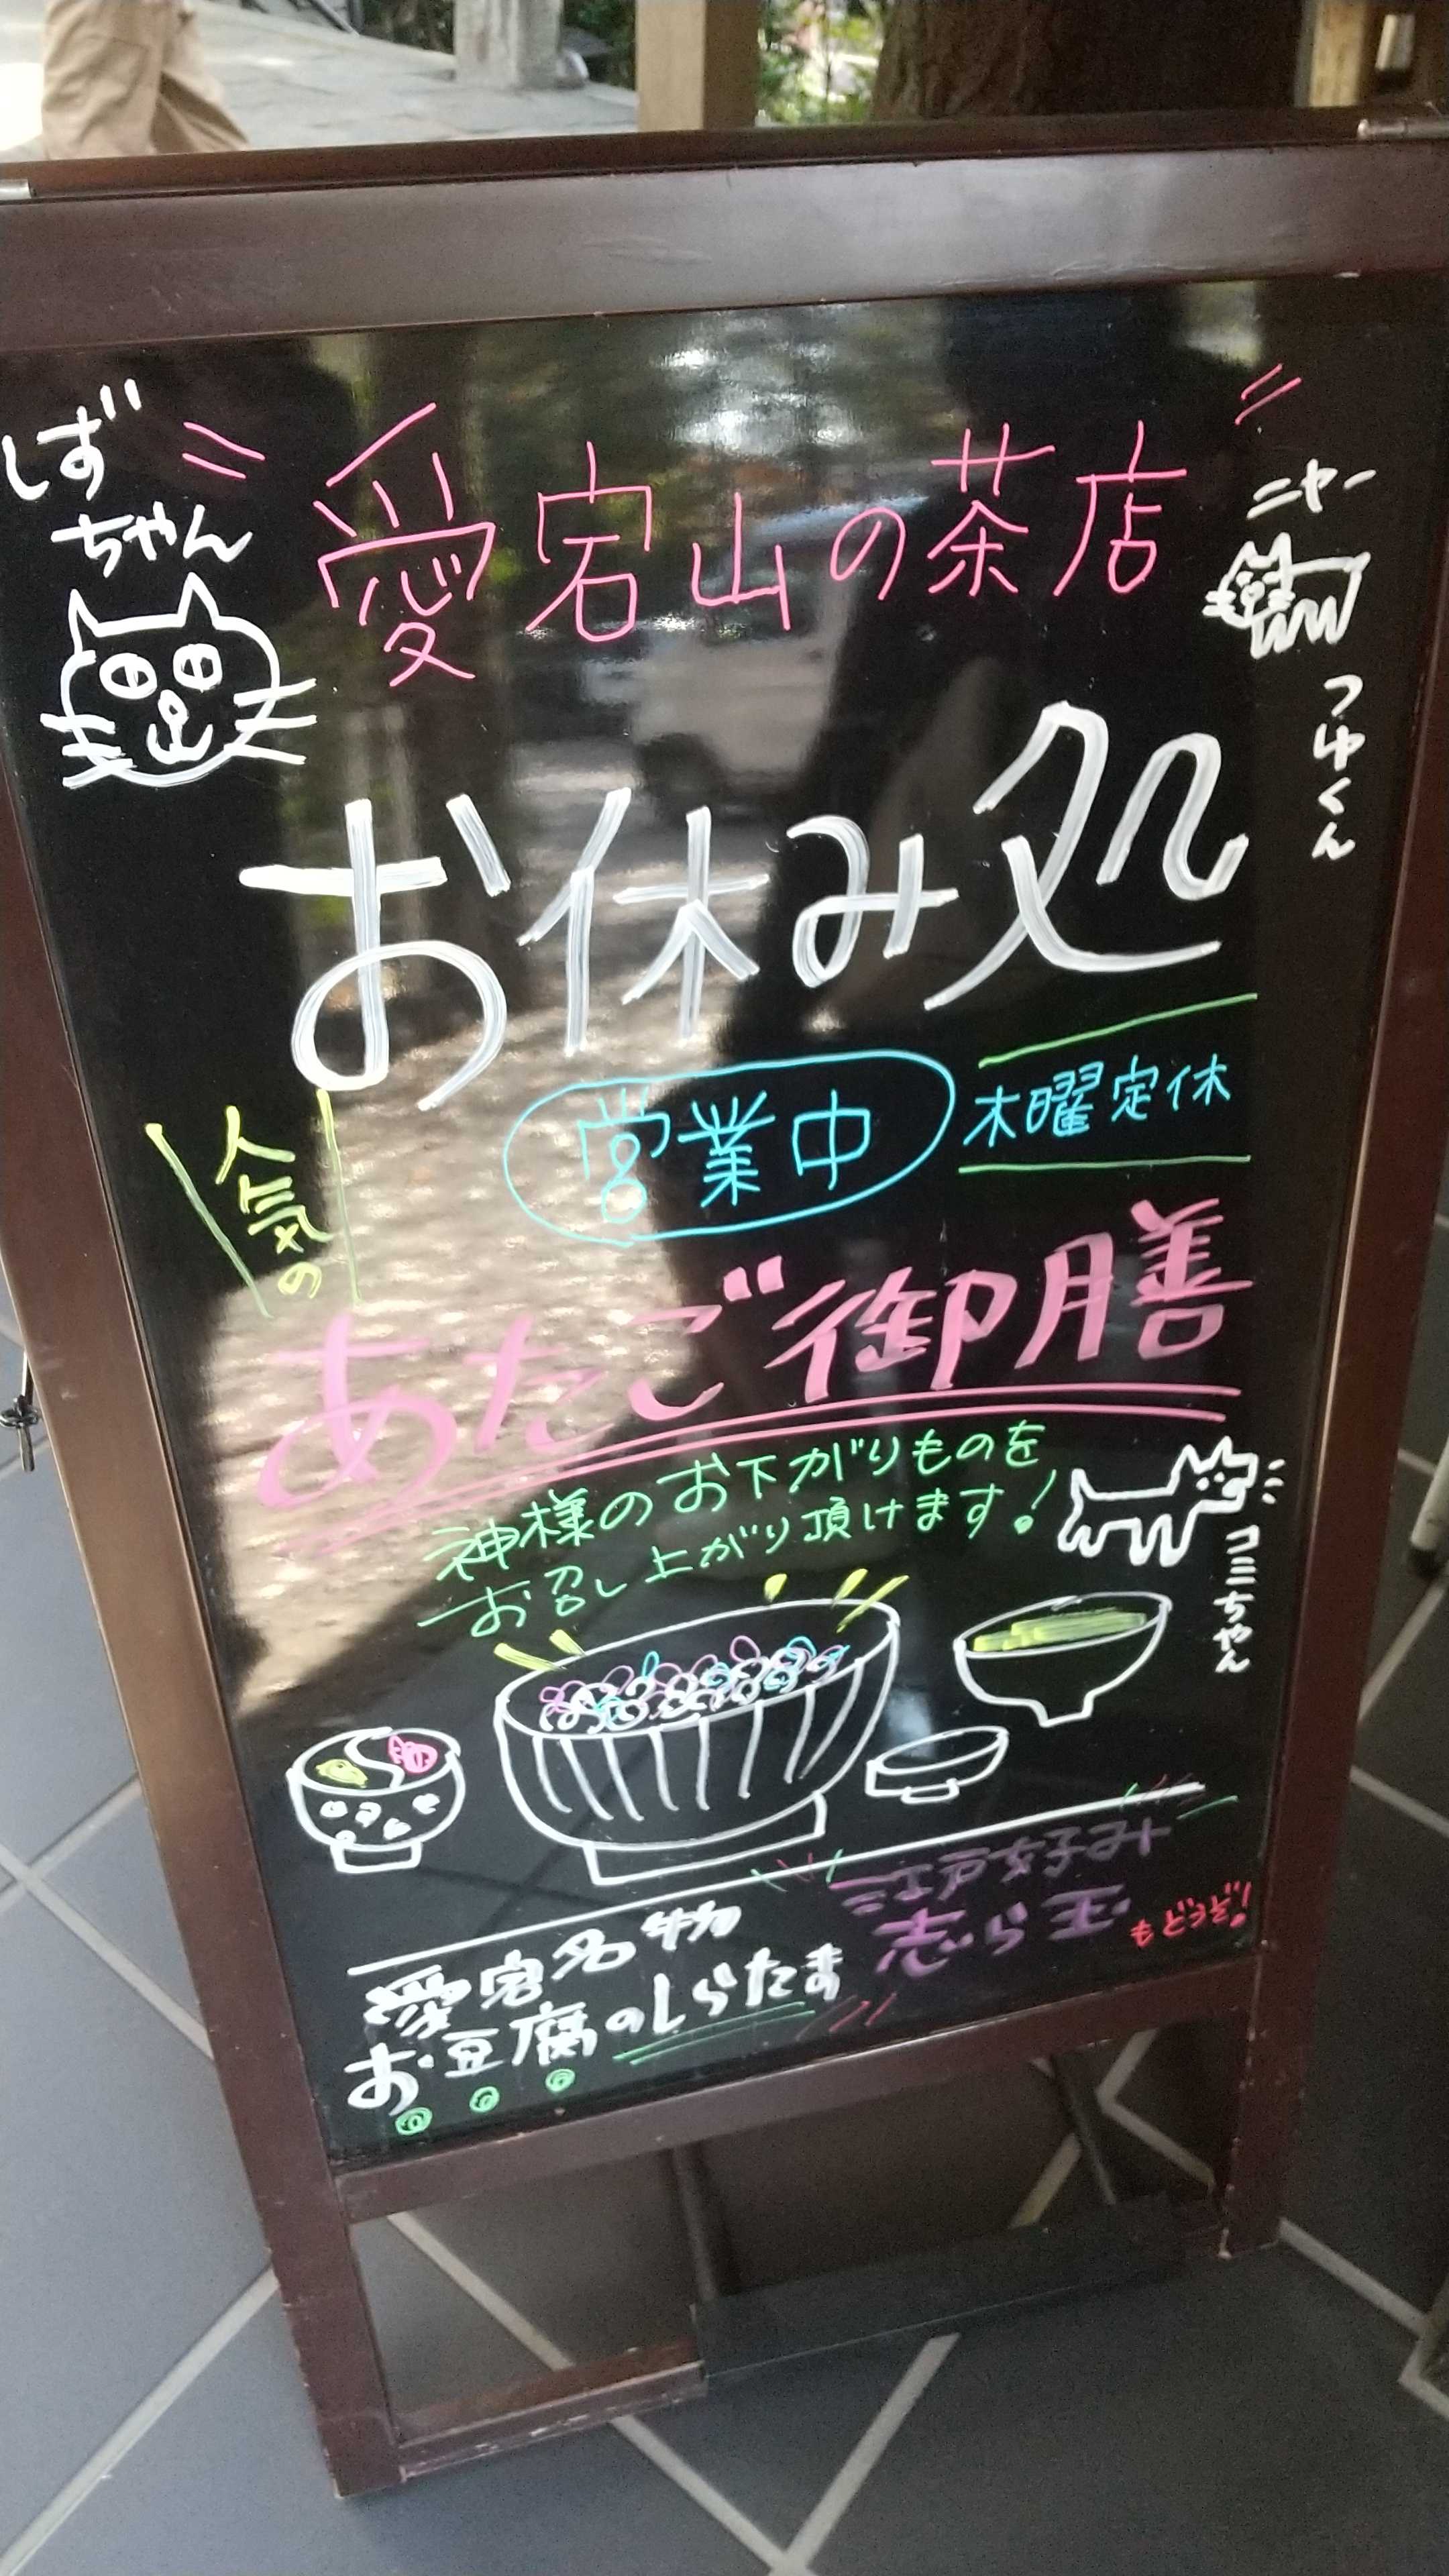 しず
ちゃん
愛宕山の茶店
ニャー
つゆくん
お休み処
営業中
木曜定休
人気の
あたご御膳
神様のお下がりものを
お召し上がり頂けます!
コミちゃん
愛宕名物
お豆腐のしらたま
江戸好み
志ら玉
もどうぞ!